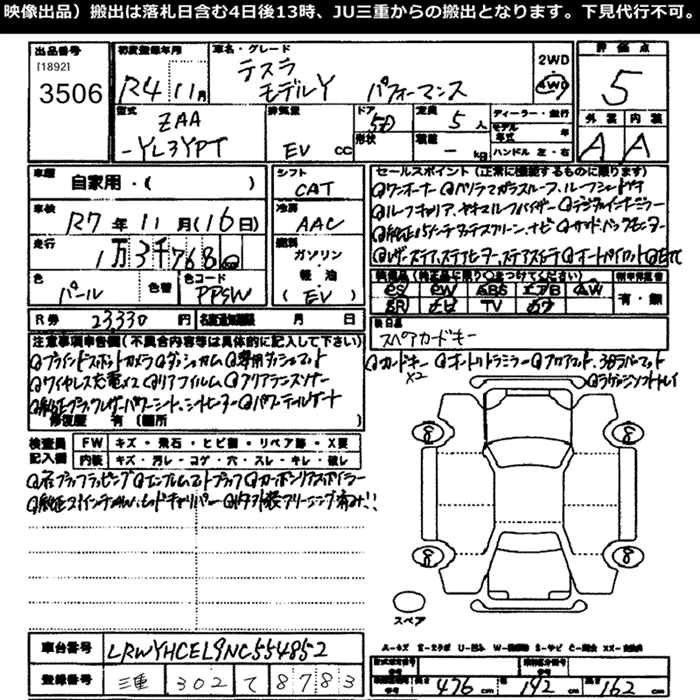 映像出品）搬出は落札日含む4日後13時、JU三重からの搬出となります。下見代行不可。
出品番号
[1892]
3506
初度登録年月
R4 11月
車名・グレード
テスラ
モデルY パフォーマンス
2WD
4WD
評価点
5
型式
ZAA
-YL3YPT
排気量
EV cc
ドア
5D
形状
定員
5人
積載
- kg
ディーラー・並行
モデル年式 年
ハンドル 左・右
外装 内装
A A
車歴
自家用・( )
車検
R7年11月(16日)
走行
1万3千768
色
パール
色替
シフト
CAT
冷房
AAC
燃料
ガソリン
軽油
(EV)
色コード
PPSW
R券 23,330円
月 日
セールスポイント（正常に機能するものに限ります）
ワンオーナー パノラマガラスルーフ、ルーフシェード付
ルーフキャリア、ヤキマルーフバイザー デジタルインナーミラー
純正15インチタッチスクリーン、ナビ サイド・バックモニター
レザーステア、ステアヒーター、ステアスイッチ オートパイロット ETC
装備品（純正品に限り○をつけてください）
PS PW ABS エアB AW
SR ナビ TV カワ
有・無
後日品
スペアカードキー
カードキー×2 オートリトラミラー フロアマット、3Dラバーマット
ラゲッジソフトトレイ
注意事項申告欄（不具合内容等は具体的に記入して下さい）
ブラインドスポットカメラ ダッシュカム 専用ダッシュマット
ワイヤレス充電×2 リアフィルム クリアランスソナー
純正ブラックレザーパワーシート、シートヒーター パワーテールゲート
修復歴 有（箇所 ）
検査員記入欄
FW キズ・飛石・ヒビ割・リペア跡・X要
内装 キズ・汚レ・コゲ・穴・スレ・キレ・破レ
右ブラックラッピング エンブレムマットブラック カーボンリアスポイラー
純正21インチAW、レッドキャリパー
8 8
8 8
スペア
車台番号 LRWYHCEL9NC554852
登録番号 三重 302 て 8783
A－キズ E－エクボ U－凹ミ W－補修跡 S－サビ C－腐食 XX－交換済
長さ 476cm 幅 192cm 高さ 162